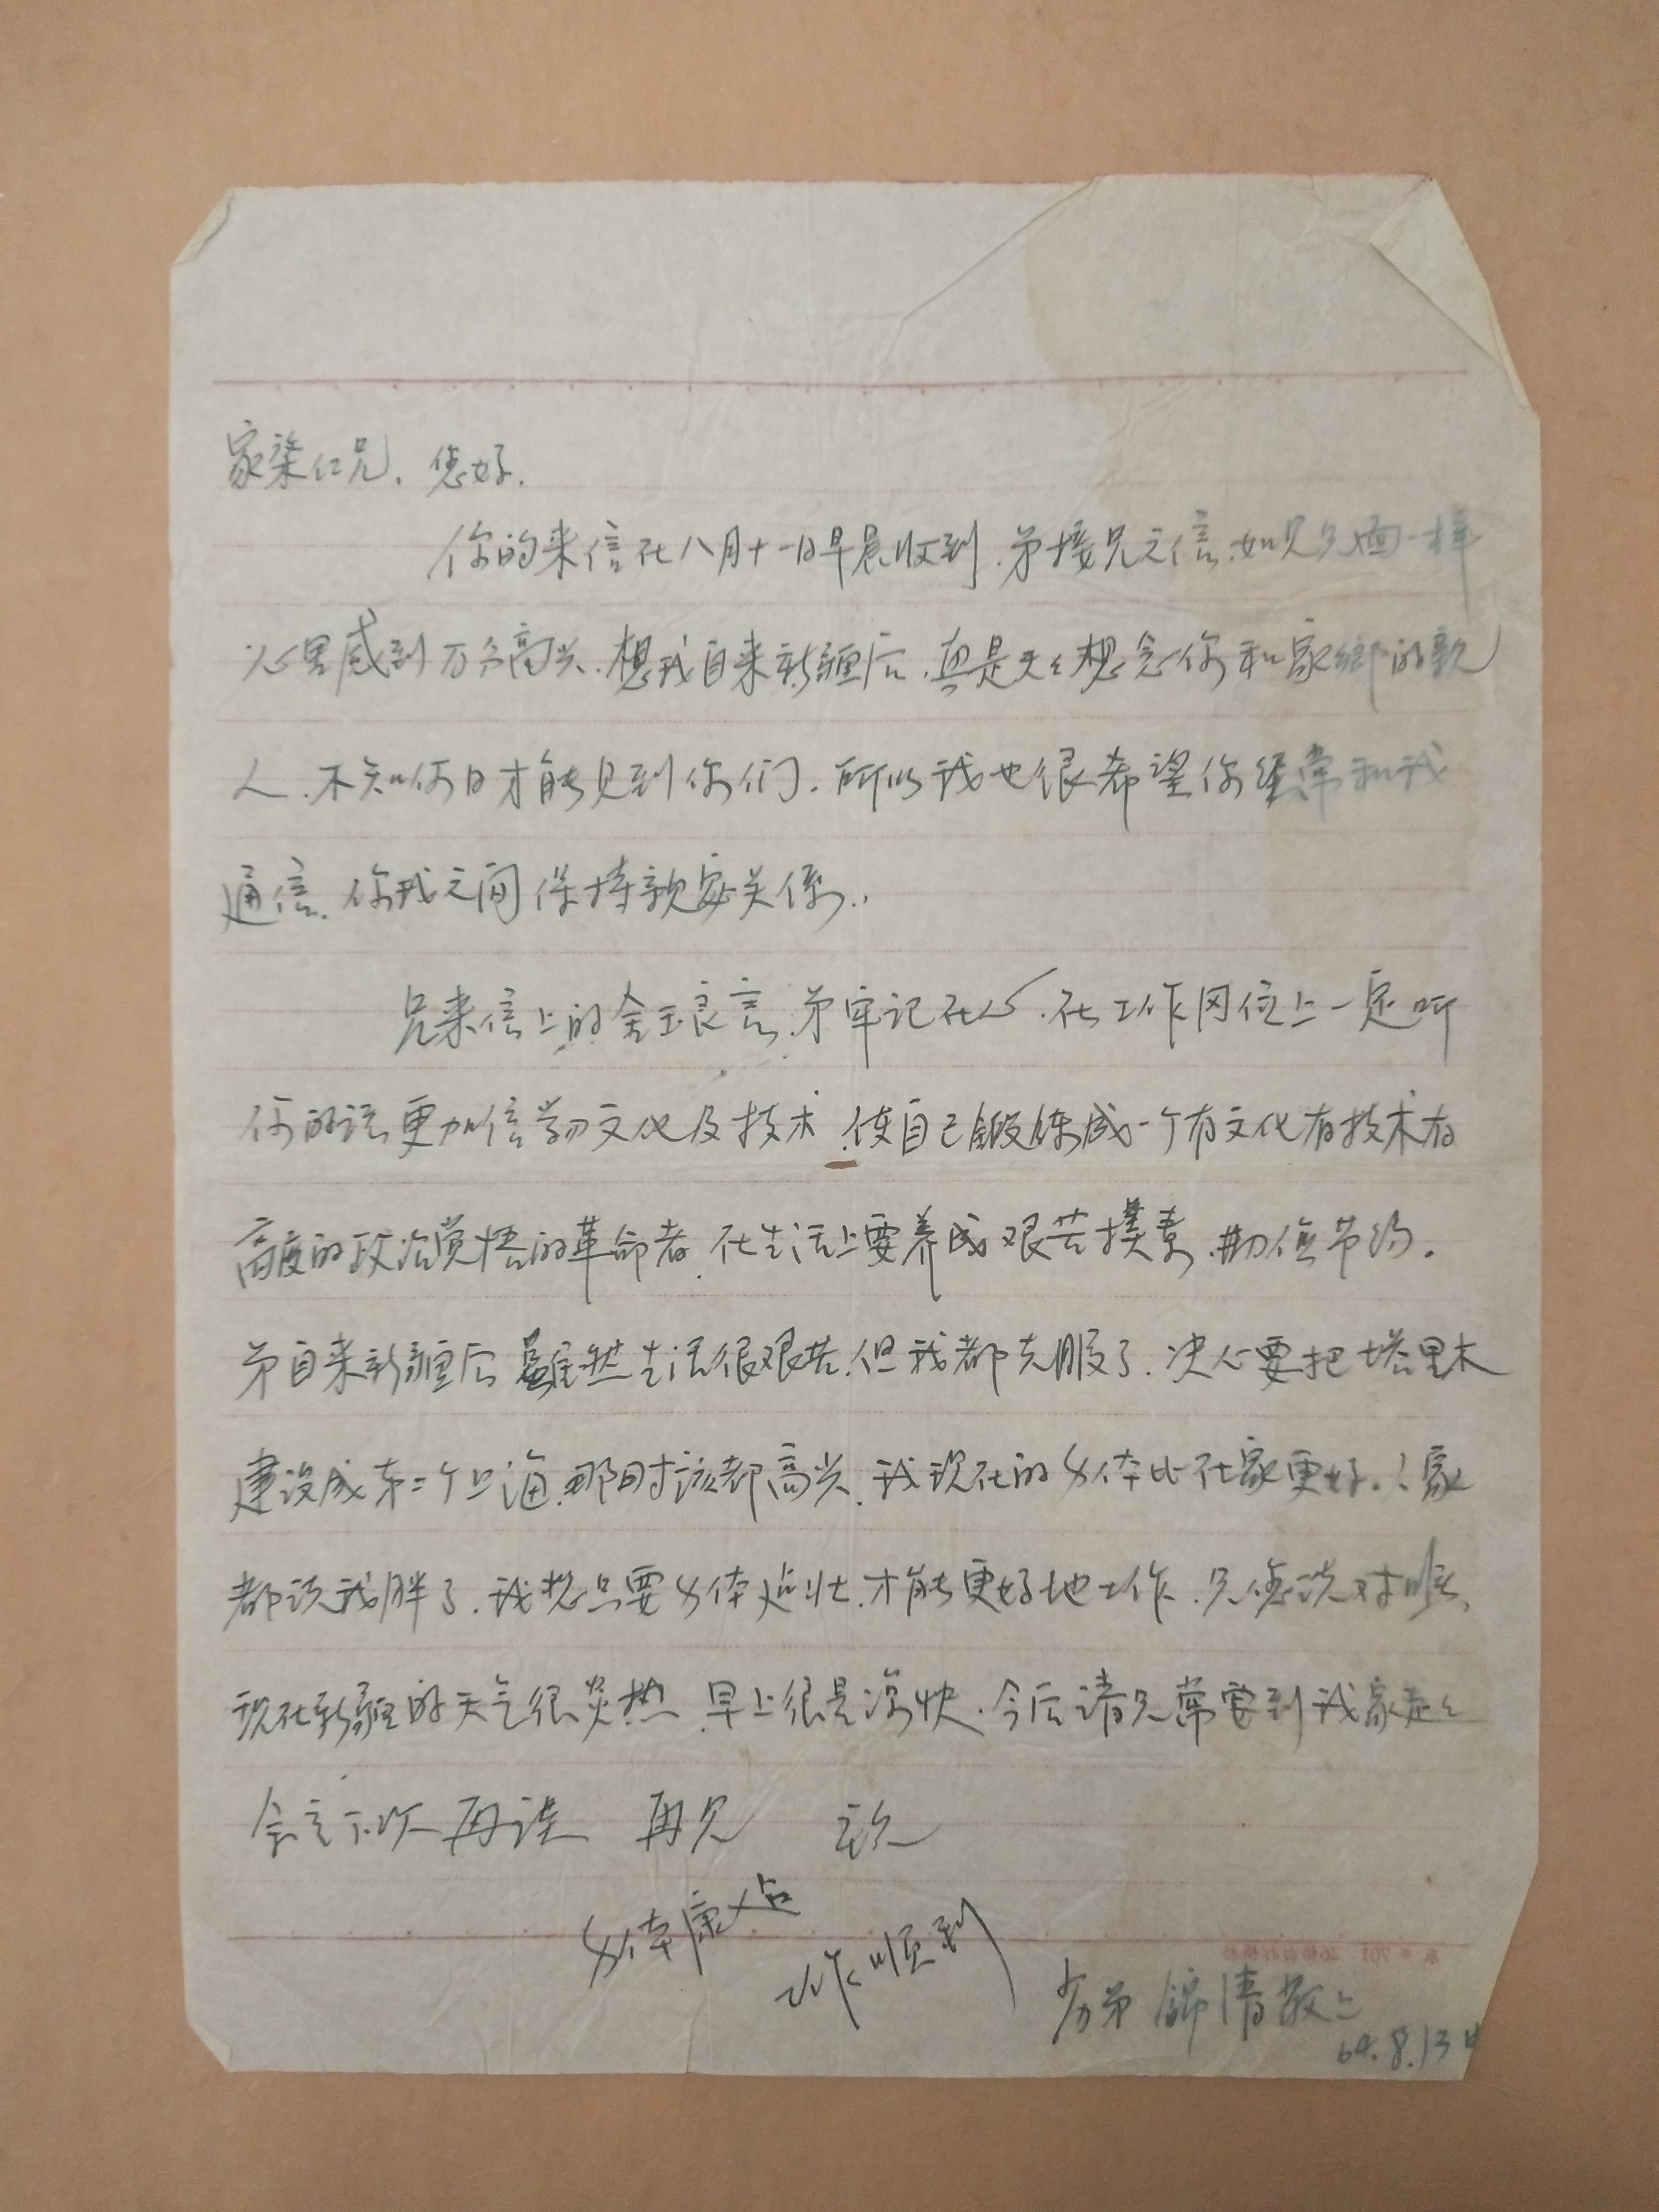 家棨仁兄．您好．
你的来信在八月十一日早晨收到．弟接兄之信．如见兄面一样
心里感到万分高兴．想我自来新疆后．真是天々想念你和家鄉的親
人．不知何日才能见到你们．所以我也很希望你经常和我
通信．你我之间保持親密关係．
兄来信上的金玉良言．弟牢记在心．在工作冈位上一定听
你的话更加倍学习文化及技术．使自己鍛炼成一个有文化有技术有
高度的政治觉悟的革命者．在生活上要养成艰苦樸素．勤俭节约．
弟自来新疆后雖然生活很艰苦．但我都克服了．决心要把塔里木
建设成第二个上海．那时该都高兴．我现在的身体比在家更好．人家
都说我胖了．我想只要身体健壮．才能更好地工作．兄您说对
现在新疆的天气很炎热．早上很是凉快．今后请兄常要到我家走々
余言下次再谈 再见 致
身体康
工作顺利
劣弟 錦清敬上
64.8.13日